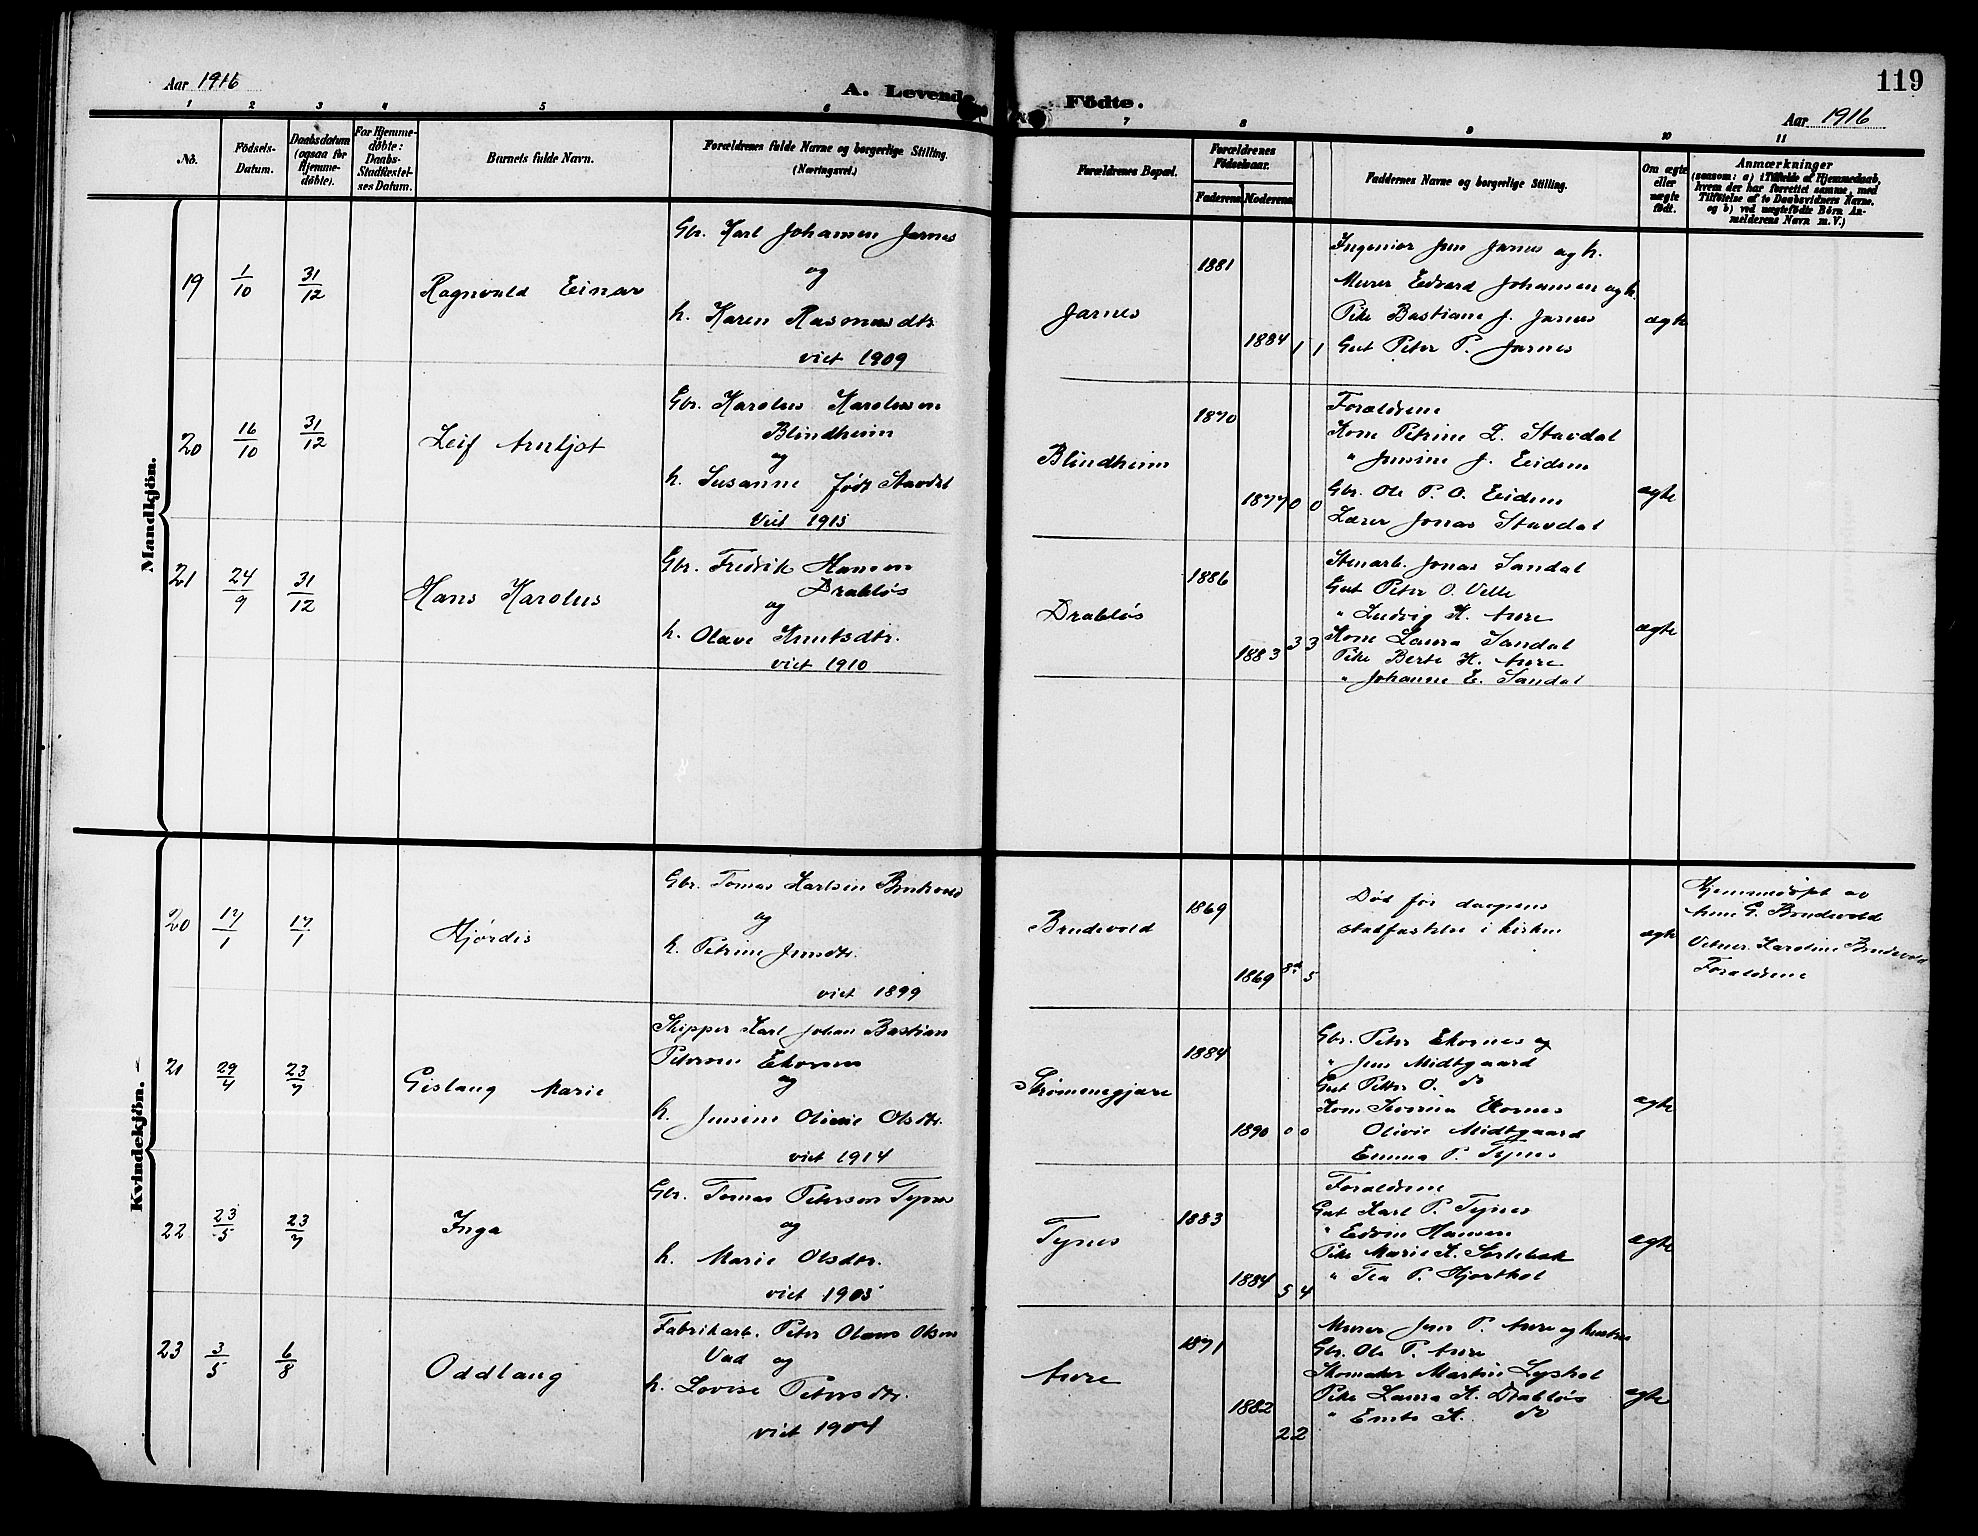 119
Aar 1916
A. Levende Födte.
Aar 1916
1 2 3 4 5 6 7 8 9 10 11
No.
Födsels-
Datum.
Daabsdatum
(ogsaa for
Hjemme-
döbte).
For Hjemme-
døbte:
Daabs-
Stadfæstel-
ses Datum.
Barnets fulde Navn.
Forældrenes fulde Navne og borgerlige Stilling.
(Næringsvei.)
Forældrenes Bopæl.
Forældrenes
Födselsaar.
Faderens Moderens
Faddernes Navne og borgerlige Stilling.
Om ægte
eller
uægte
födt.
Anmærkninger
(saasom: a) i Tilfælde af Hjemmedaab,
hvem der har forrettet samme, med
Tilföielse af to Daabsvidners Navne,
og b) ved uægtefödte Börn An-
melderens Navn m. V.)
Mandkjön.
19
1/10
31/12
Ragnvald Einar
Gbr. Karl Johansen Jarnes
og
h. Karen Rasmusdtr.
viet 1909
Jarnes
1881
1884
1 1
Ingeniør Jens Jarnes og h.
Murer Edvard Johansen og h.
Pike Bastiane J. Jarnes
Gut Peter P. Jarnes
ægte
20
16/10
31/12
Leif Arnljot
Gbr. Karolus Karolusen
Blindheim
og
h. Susanne født Stavdal
Viet 1915
Blindheim
1870
1877
0 0
Forældrene
Kone Petrine L. Stavdal
" Jensine J. Eidem
Gbr. Ole P. O. Eidem
Lærer Jonas Stavdal
ægte
21
24/9
31/12
Hans Karolus
Gbr. Fredrik Hansen
Drabløs
og
h. Olave Knutsdtr.
viet 1910
Drabløs
1886
1883
3 3
Stenarb. Jonas Sandal
Gut Peter O. Velle
" Ludvig K. Aure
Kone Laura Sandal
Pike Berte K. Aure
" Johanne E. Sandal
ægte
Kvindekjön.
20
17/1
17/1
Hjørdis
Gbr. Tomas Karlsen Brudevold
og
h. Petrine Jensdtr.
viet 1899
Brudevold
1869
1869
5
Død før daapens
stadfæstelse i kirken
ægte
Hjemmedøpt av
G. Brudevold
Vitner: Karoline Brudevold
Forældrene
21
29/4
23/7
Gislaug Marie
Skipper Karl Johan Bastian
Petersen Ekornes
og
h. Jensine Olivie Olsdtr.
viet 1914
Strømmegjære
1884
1890
0 0
Gbr. Peter Ekornes og
" Jens Midtgaard
Gut Petter O. do
Kone Severina Ekornes
Olivie Midtgaard
Emma P. Tynes
ægte
22
23/5
23/7
Inga
Gbr. Tomas Petersen Tynes
og
h. Marie Olsdtr.
viet 1905
Tynes
1883
1884
5 4
Forældrene
Gut Karl P. Tynes
" Edvin Hansen
Pike Marie K. Sortebak
" Tea P. Hjorthol
ægte
23
3/5
6/8
Oddlaug
Fabrikarb. Peter Olaus Olsen
Vad og
h. Lovise Petersdtr.
viet 1904
Aure
1871
1882
2 2
Murer Jens P. Aure og hustru
Gbr. Ole P. Aure
Skomaker Martin Lyshol
Pike Laura K. Drabløs
" K. do
ægte